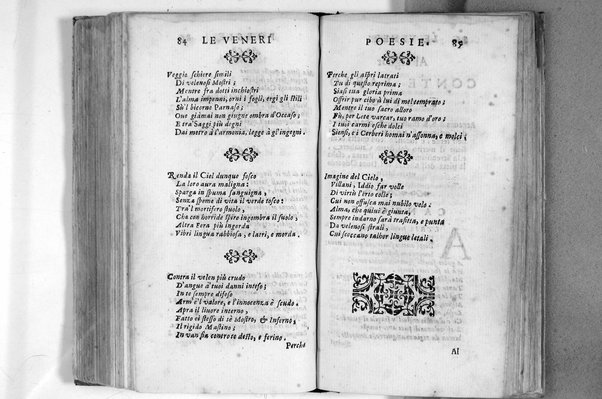 84 LE VENERI
Veggio schiere simili
Di velenosi Mostri;
Mentre fra dotti inchiostri
L'alma impenni, orni i fogli, ergi gli stili
Sù'l bicorne Parnaso;
Oue giamai non giugne ombra d'Occaso;
E tra Saggi più degni
Dai metro à l'armonia, legge à gl'ingegni.
Renda il Ciel dunque fosco
La loro aura maligna:
Sparga in spuma sanguigna,
Senza speme di vita il verde tosco:
Tra'l mortifero stuolo,
Che con horride spire ingombra il suolo;
Altra Fera più ingorda
Vibri lingua rabbiosa, e latri, e morda.
Contra il velen più crudo
D'angue à tuoi danni inteso;
In te sempre difeso
Arm'è'l valore, e l'innocenza è scudo.
Apra il liuore interno,
Fatto di stesso di sè Mostro, & Inferno;
Il rigido Mastino;
In van sia contro te desto, e ferino.
Perche
POESIE. 85
Perche gli aspri latrati
Tu di questo reprima;
Siusi tua gloria prima
Offrir pur cibo à lui di mel temprato:
Mentre il tuo sacro alloro
Fù, per Lete varcar, tuo ramo d'oro;
I tuoi carmi esche dolci
Siensi, e i Cerberi homai n'assonna, e molci.
Imagine del Cielo,
Villani, Iddio far volle
Di virtù l'erto colle;
Cui non offusca mai nubilo velo.
Alma, che quiui è giunta,
Sempre indarno sarà trafitta, e punta
Da velenosi strali,
Cui scoccano talhor lingue letali.
Al